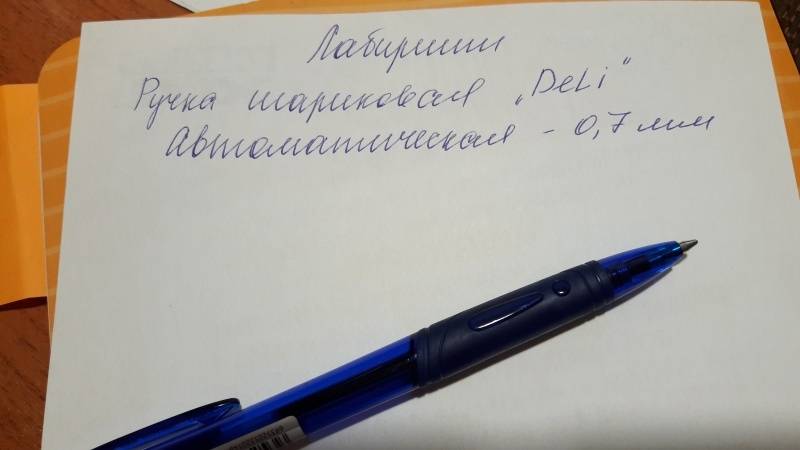 Лабиринт
Ручка шариковая „DeLi"
Автоматическая - 0,7 мм